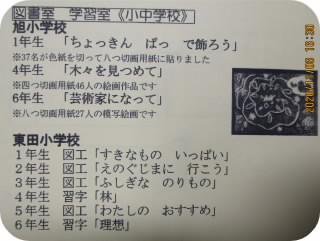 図書室　学習室《小中学校》
旭小学校
1年生　「ちょっきん　ぱっ　で飾ろう」
※37名が色紙を切って八つ切画用紙に貼りました
4年生　「木々を見つめて」
※四つ切画用紙46人の絵画作品です
6年生　「芸術家になって」
※八つ切画用紙27人の模写絵画です
東田小学校
1年生　図工「すきなもの　いっぱい」
2年生　図工「えのぐじまに　行こう」
3年生　図工「ふしぎな　のりもの」
4年生　習字「林」
5年生　図工「わたしの　おすすめ」
6年生　習字「理想」